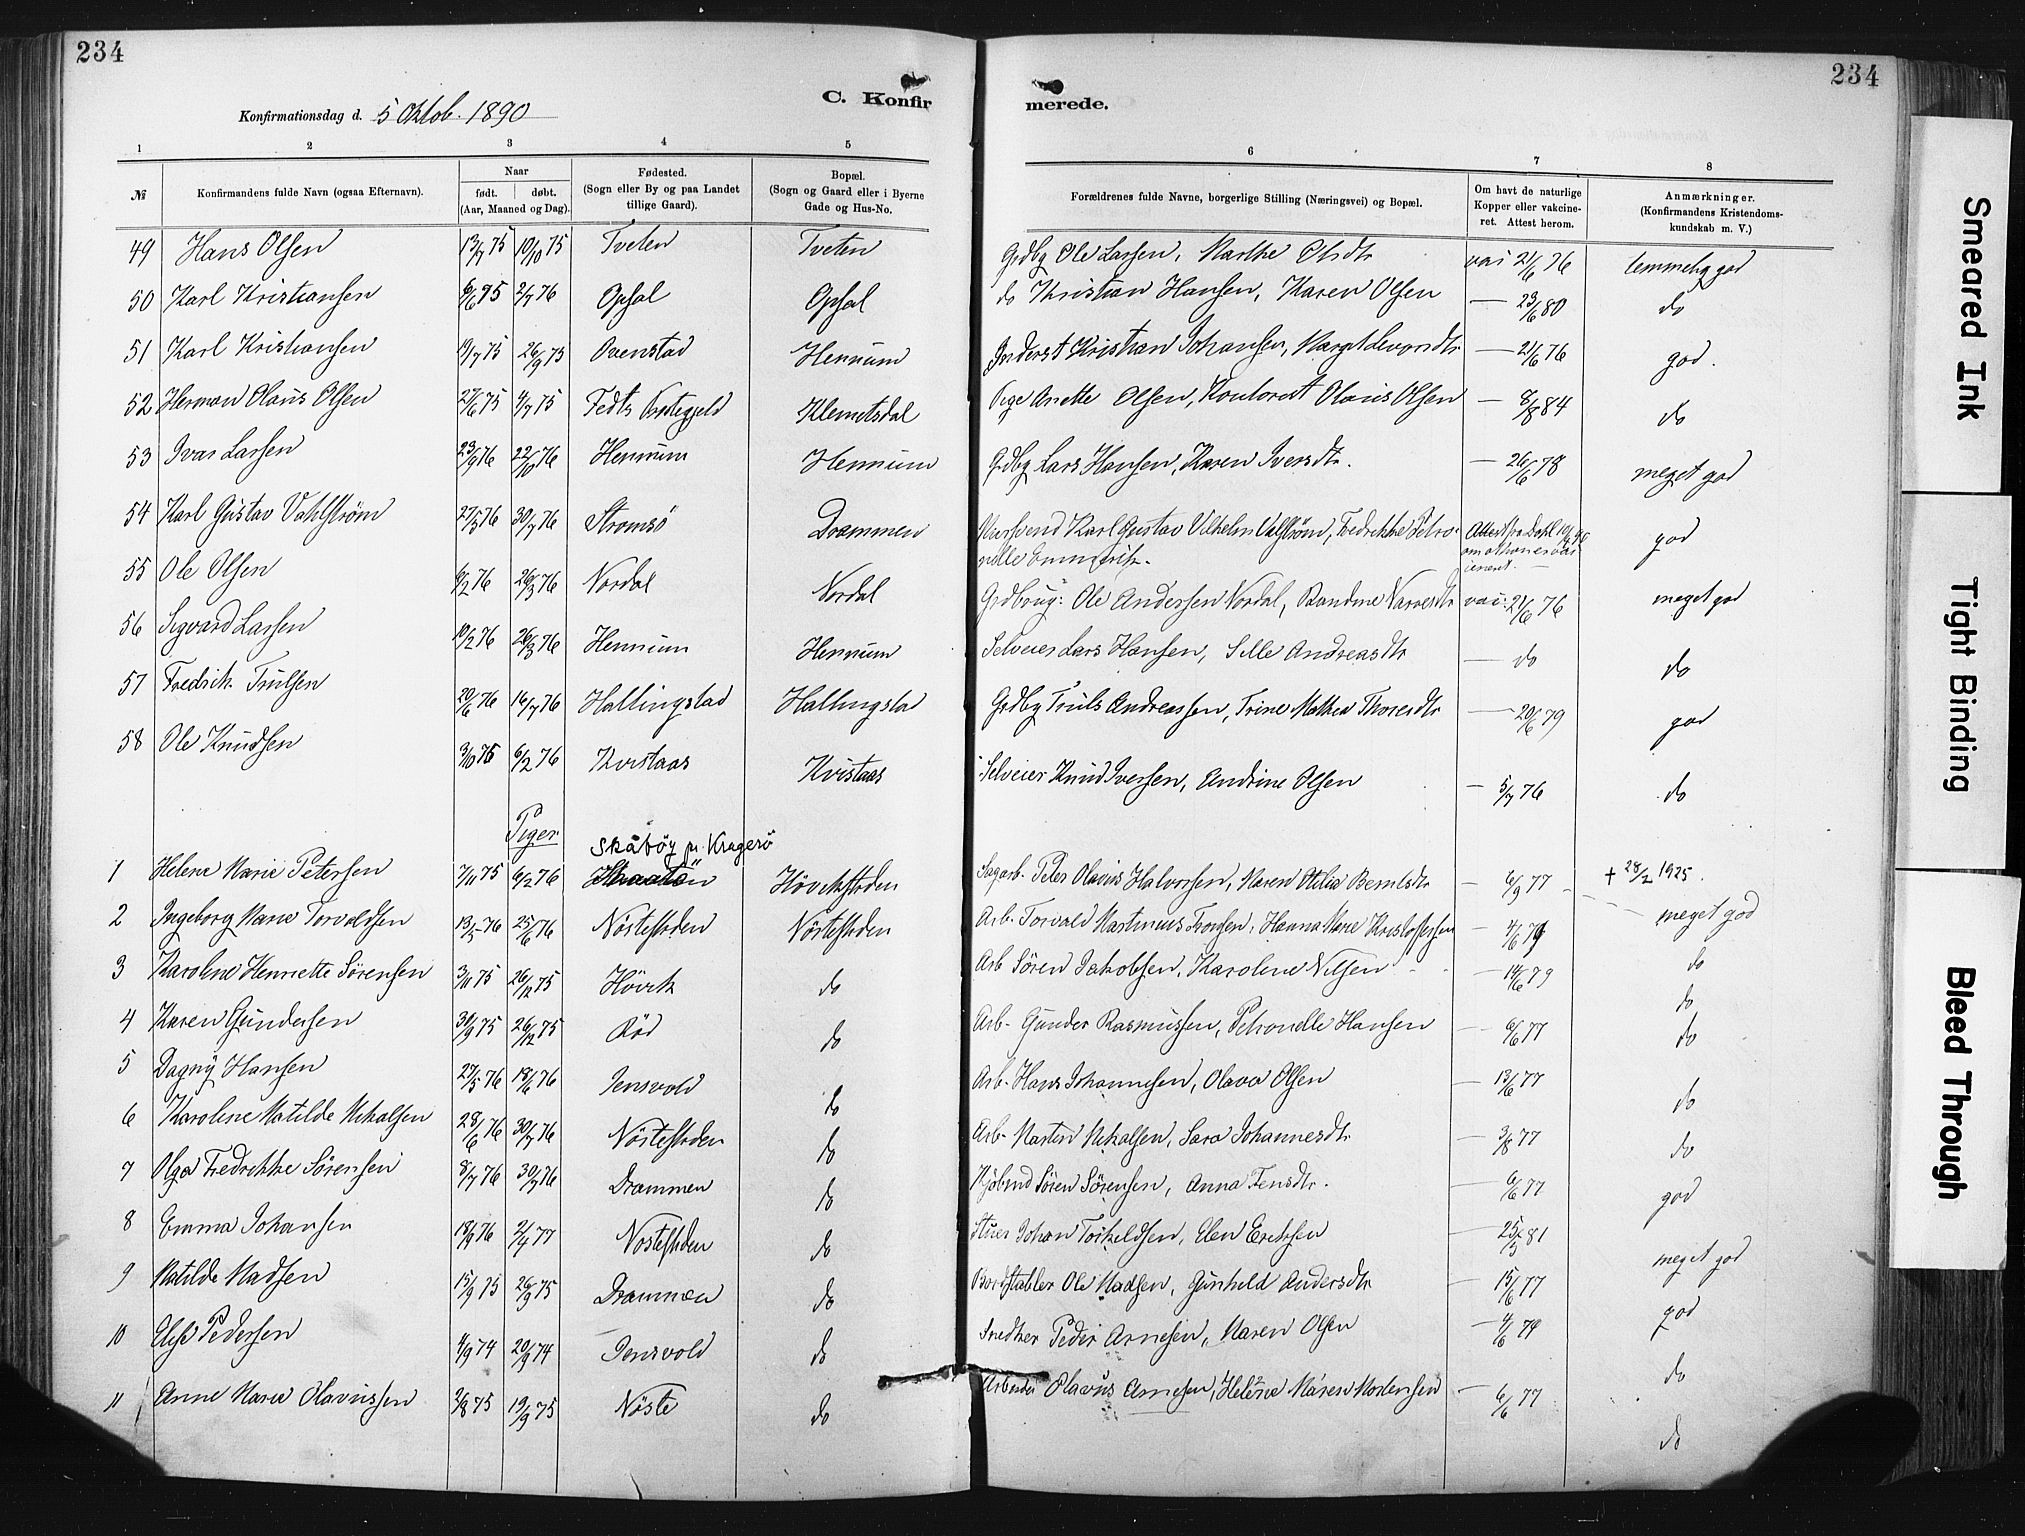 234
234
C. Konfir merede.
Konfirmationsdag d. 5 Oktob. 1890
1 2 3 4 5 6 7 8
№
Konfirmandens fulde Navn (ogsaa Efternavn).
Naar
født. døbt.
(Aar, Maaned og Dag).
Fødested.
(Sogn eller By og paa Landet
tillige Gaard).
Bopæl.
(Sogn og Gaard eller i Byerne
Gade og Hus-No.
Forældrenes fulde Navne, borgerlige Stilling (Næringsvei) og Bopæl.
Om havt de naturlige
Kopper eller vakcine-
ret. Attest herom.
Anmærkninger.
(Konfirmandens Kristendoms-
kundskab m. V.)
49 Hans Olsen 13/7 75 10/10 75 Tveten Tveten Grdbg Ole Larsen, Marthe Olsdtr vac 21/6 76 temmelig god
50 Karl Kristiansen 2/7 76 Opsal Opsal do Kristian Hansen, Karen Olsen — 23/6 80 do
51 Karl Kristiansen 19/7 75 26/9 75 Ovenstad Hennum Kristian Johansen, — 21/6 76 god.
52 Herman Olaus Olsen 27/6 75 4/7 75 Fedts Prestegjeld Klemetsdal Pige Anette Olsen, Olaus Olsen — 8/8 84 do
53 Ivar Larsen 23/9 76 22/10 76 Hennum Hennum Grdbg Lars Hansen, Karen Iversdtr. — 26/6 78 meget god
54 Karl Gustav Vahlstrøm 27/5 76 30/7 76 Strømsö Drammen Karl Gustav Vilhelm Valstrøm, Fredrikke Petro-
nelle god
55 Ole Olsen 6/2 76 26/3 76 Nordal Nordal Grdbrug: Ole Andersen Nordal, vac: 21/6 76 meget god
56 Sigvard Larsen 19/2 76 26/3 76 Hennum Hennum Selveier Lars Hansen, Sille Andreasdtr — do do
57 Fredrik Trulsen 20/6 76 16/7 76 Hallingstad Hallingstad Grdbg Truls Andreassen, Trine Mathea Thoresdtr — 20/6 79 god
58 Ole Knudsen 3/10 75 6/2 76 Kvistaas Kvistaas Selveier Knud Iversen, Andrine Olsen — 5/7 76 do
Piger
Skåtöy pr. Kragerö
1 Helene Marie Petersen 7/11 75 6/2 76 Hövikstrden Sagarb. Peter Olavus Halvorsen, Maren Otilia Berntsdtr — 6/9 77 + 28/2 1925.
meget god
2 Ingeborg Marie Torvaldsen 13/5 76 25/6 76 Nöstestrden Nöstestrden Arb. Torvald Martinius Tronsen, Hanna Marie Kristoffersen — 4/6 79 do
3 Karoline Henriette Sörensen 3/11 75 26/12 75 Hövik do Arb Sören Jakobsen, Karoline Nilsen — 14/6 79 do
4 Karen Gundersen 30/9 75 26/12 75 Röd do Arb. Gunder Rasmussen, Petronelle Hansen — 6/6 77 do
5 Dagny Hansen 27/5 76 18/6 76 Jensvold do Arb. Hans Johannesen, Olava Olsen — 13/6 77 do
6 Karoline Matilde Nikolsen 28/6 76 30/7 76 Nöstestrden do Arb. Martin Nikolsen, Sara Johannesdtr — 3/8 77 do
7 Olga Fredrikke Sörensen 8/7 76 30/7 76 Drammen do Kjöbmd Sören Sörensen, Anna Jensdtr. — 6/6 77 god
8 Emma Johansen 2/4 77 Nöstestrden do Johan Torkeldsen, Elen Eriksen — 25/5 81 meget god
9 Matilde Madsen 15/9 75 26/9 75 Drammen do Bordstabler Ole Madsen, Gunhild Andersdtr — 15/6 77 god
10 Elise Pedersen 4/9 74 20/9 74 Jensvold do Snedker Peder Arnesen, Maren Olsen — 4/6 79 do
11 Anne Marie Olavussen 9/8 75 19/9 75 Nöste do Arbeider Olavus Arnesen, Helene Maren Mortensen — 6/6 77 do
Smeared Ink
Tight Binding
Bleed Through